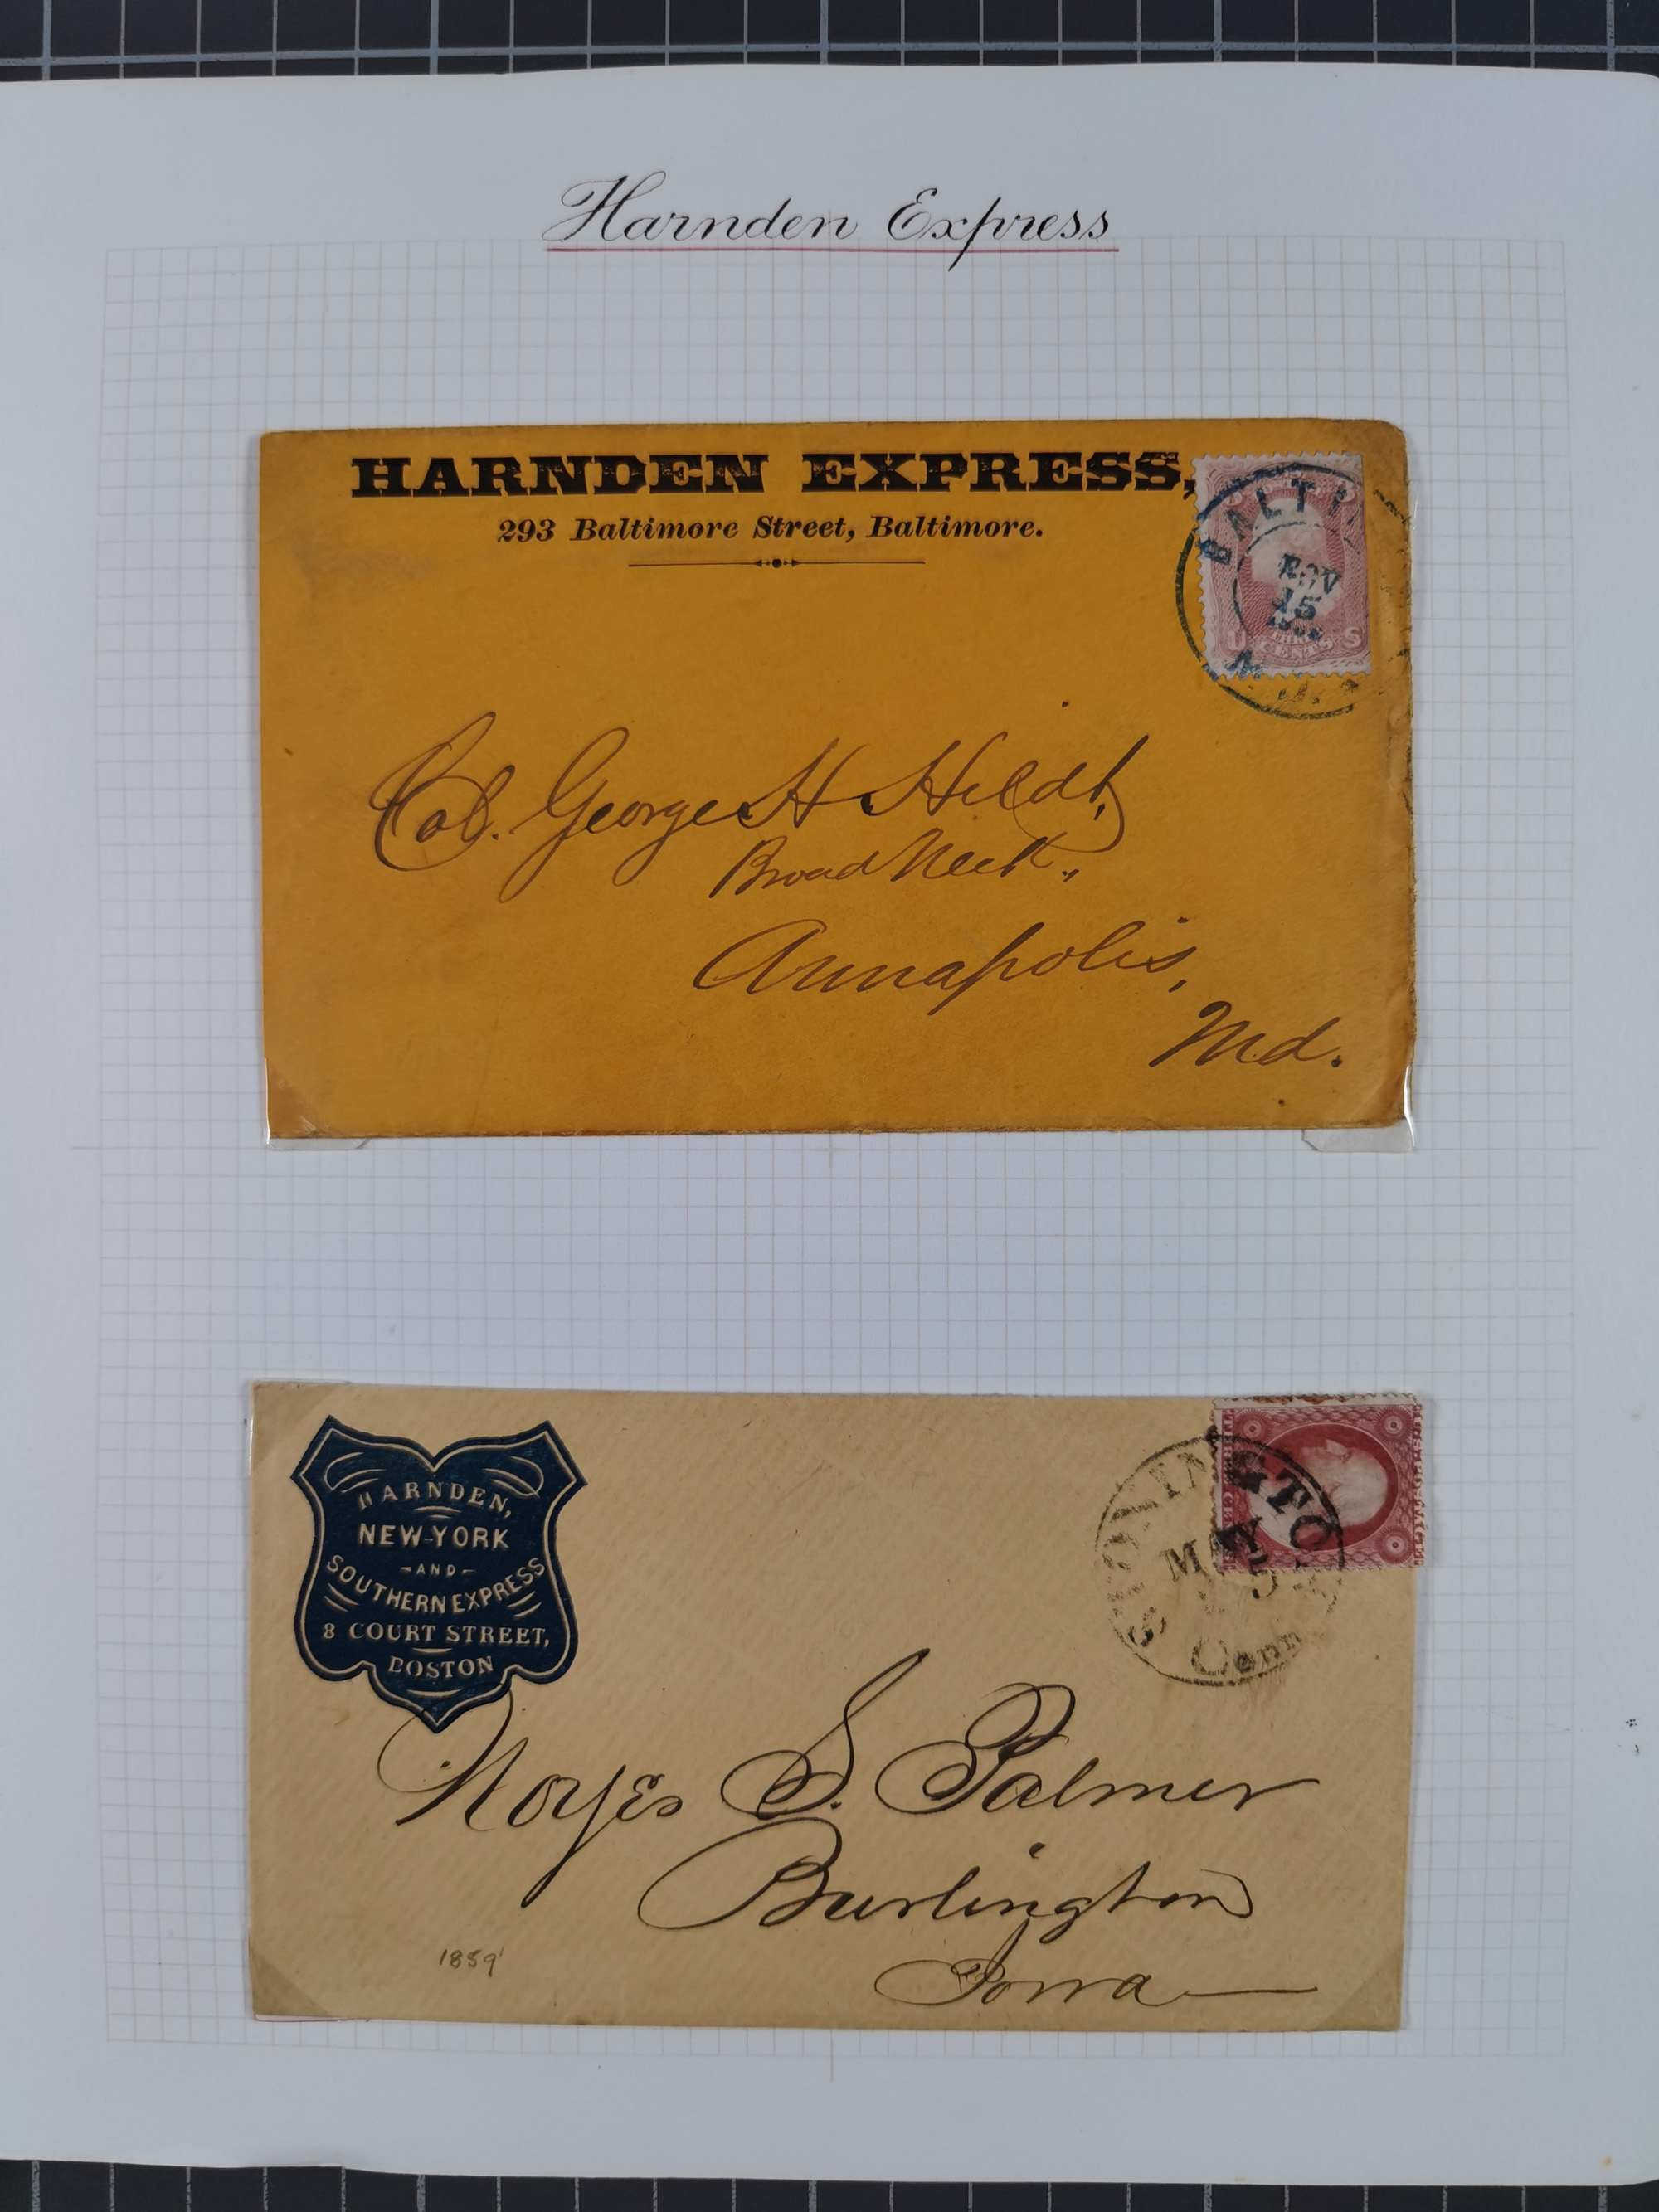 Harnden Express
HARNDEN EXPRESS,
293 Baltimore Street, Baltimore.
BALTI
NOV
15
U S
CENTS
Col. George H Hildt,
Broad Neck,
Annapolis,
Md.
HARNDEN,
NEW-YORK
-AND-
SOUTHERN EXPRESS
8 COURT STREET,
BOSTON
STONINGTON
MAY
Conn
Noyes S. Palmer
Burlington
Iowa
1859